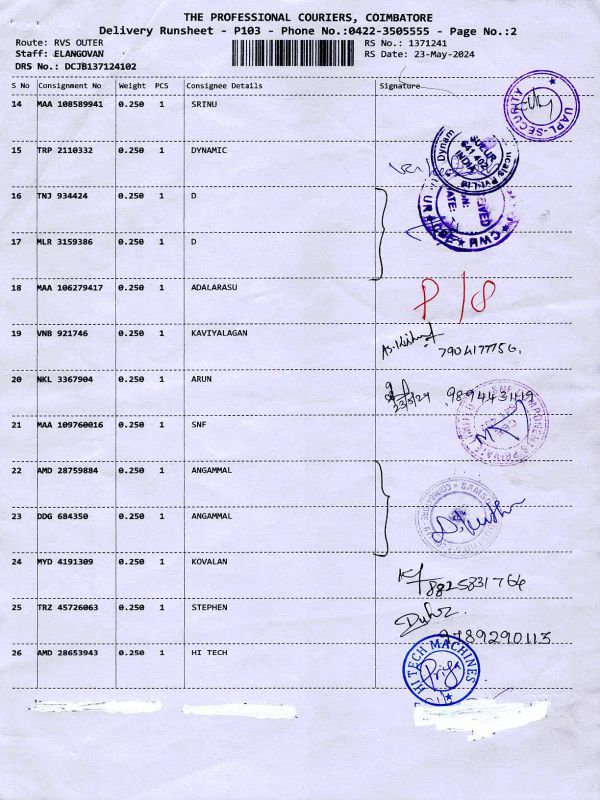 THE PROFESSIONAL COURIERS, COIMBATORE
Delivery Runsheet - P103 - Phone No.:0422-3505555 - Page No.:2
Route: RVS OUTER RS No.: 1371241
Staff: ELANGOVAN RS Date: 23-May-2024
DRS No.: DCJB137124102
S No Consignment No Weight PCS Consignee Details Signature
14 MAA 108589941 0.250 1 SRINU
UAPL-SECURITY
15 TRP 2110332 0.250 1 DYNAMIC
SULUR
641 402
INDIA
16 TNJ 934424 0.250 1 D
17 MLR 3159386 0.250 1 D
CWH
18 MAA 106279417 0.250 1 ADALARASU P/8
19 VNB 921746 0.250 1 KAVIYALAGAN
7904177756.
20 NKL 3367904 0.250 1 ARUN
23/5/24 9894431119
21 MAA 109760016 0.250 1 SNF
22 AMD 28759884 0.250 1 ANGAMMAL
23 DDG 684350 0.250 1 ANGAMMAL
24 MYD 4191309 0.250 1 KOVALAN
8825831764
25 TRZ 45726063 0.250 1 STEPHEN
9789290113
26 AMD 28653943 0.250 1 HI TECH
HI TECH MACHINES
Priya